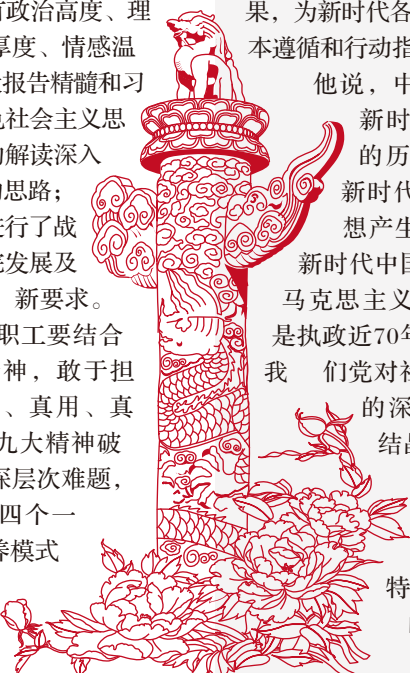 有政治高度、理
厚度、情感温
报告精髓和习
社会主义思
解读深入
思路；
进行了战
发展及
新要求。
职工要结合
神，敢于担
、真用、真
九大精神破
深层次难题，
四个一
模式
果，为新时代各
本遵循和行动指
他说，中
新时
的历
新时代
想产生
新时代中国
马克思主义
是执政近70年
我 们党对
的深
结
特